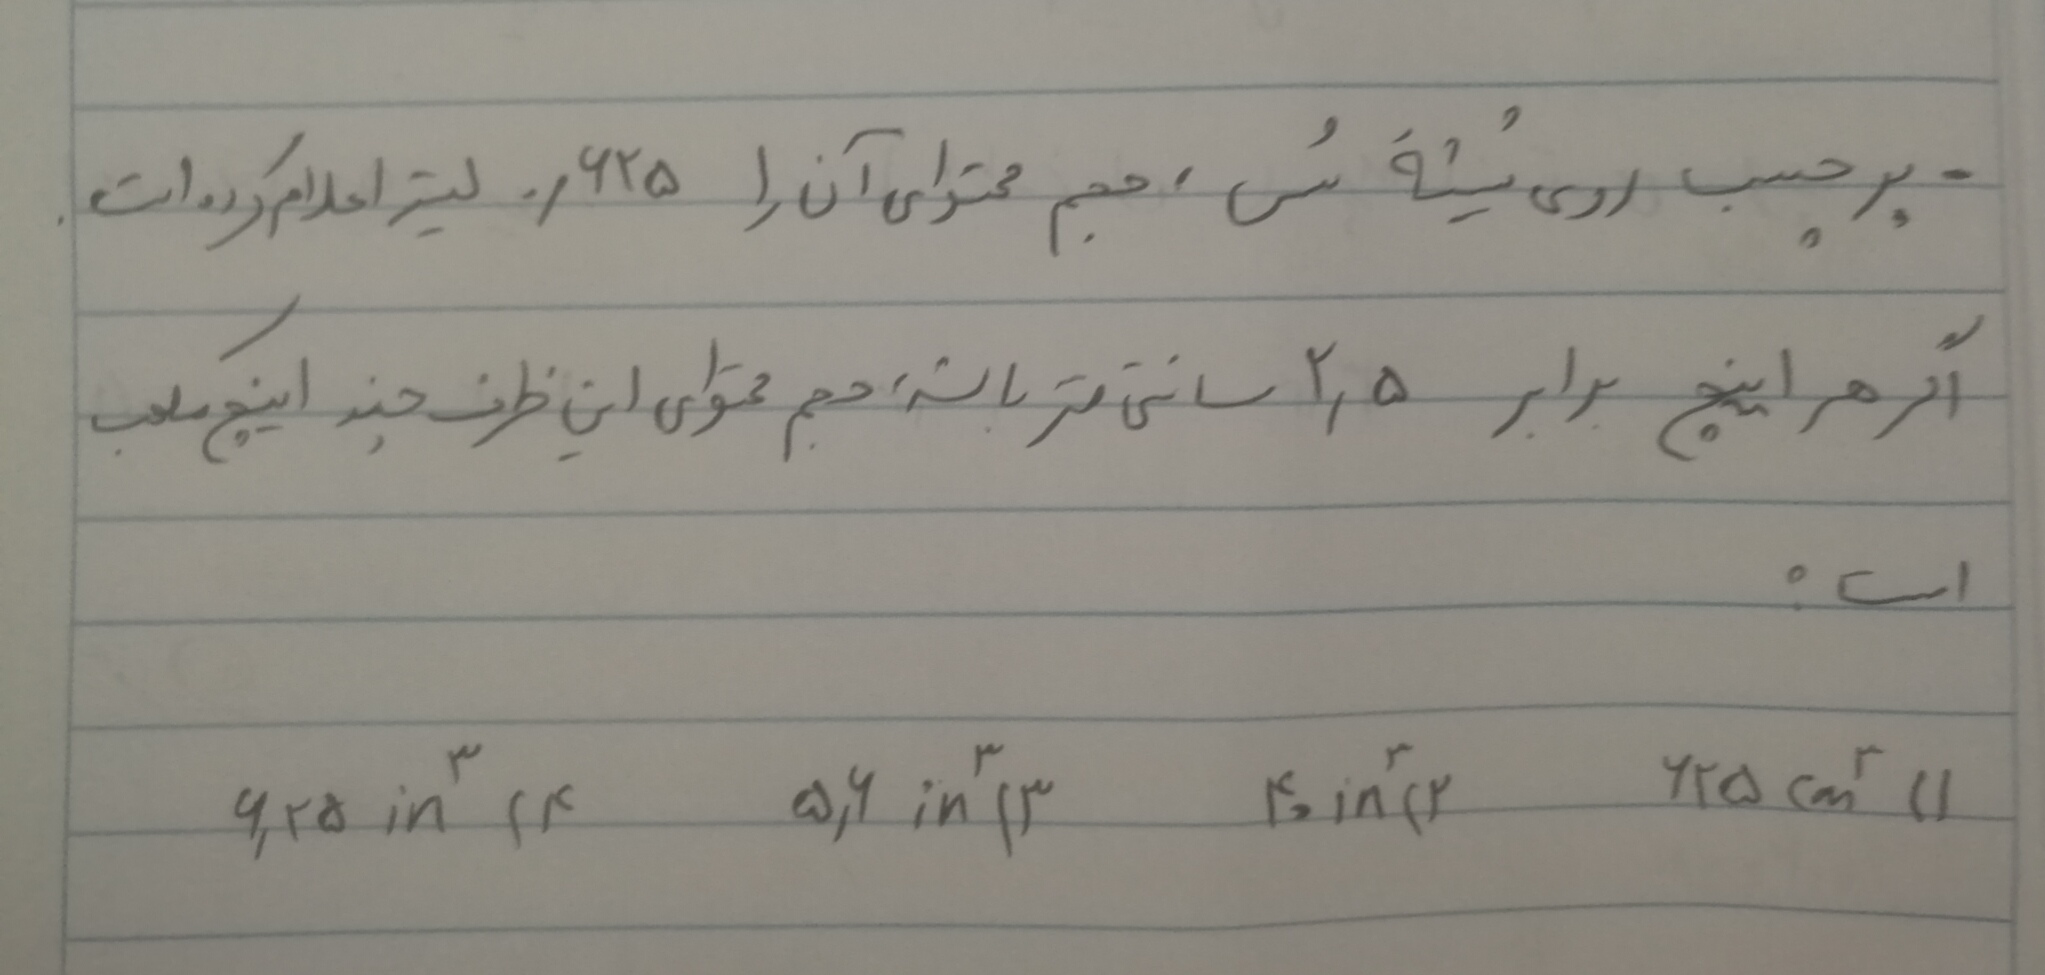 - برچسب روی شیشهٔ سُس، حجم محتوای آن را ۰٫۶۲۵ لیتر اعلام کرده است.
اگر هر اینچ برابر ۲٫۵ سانتی متر باشد، حجم محتوای این ظرف چند اینچ مکعب
است؟
۱) ۶۲۵ cm³ ۲) ۴۰ in³ ۳) ۵٫۶ in³ ۴) ۶٫۲۵ in³